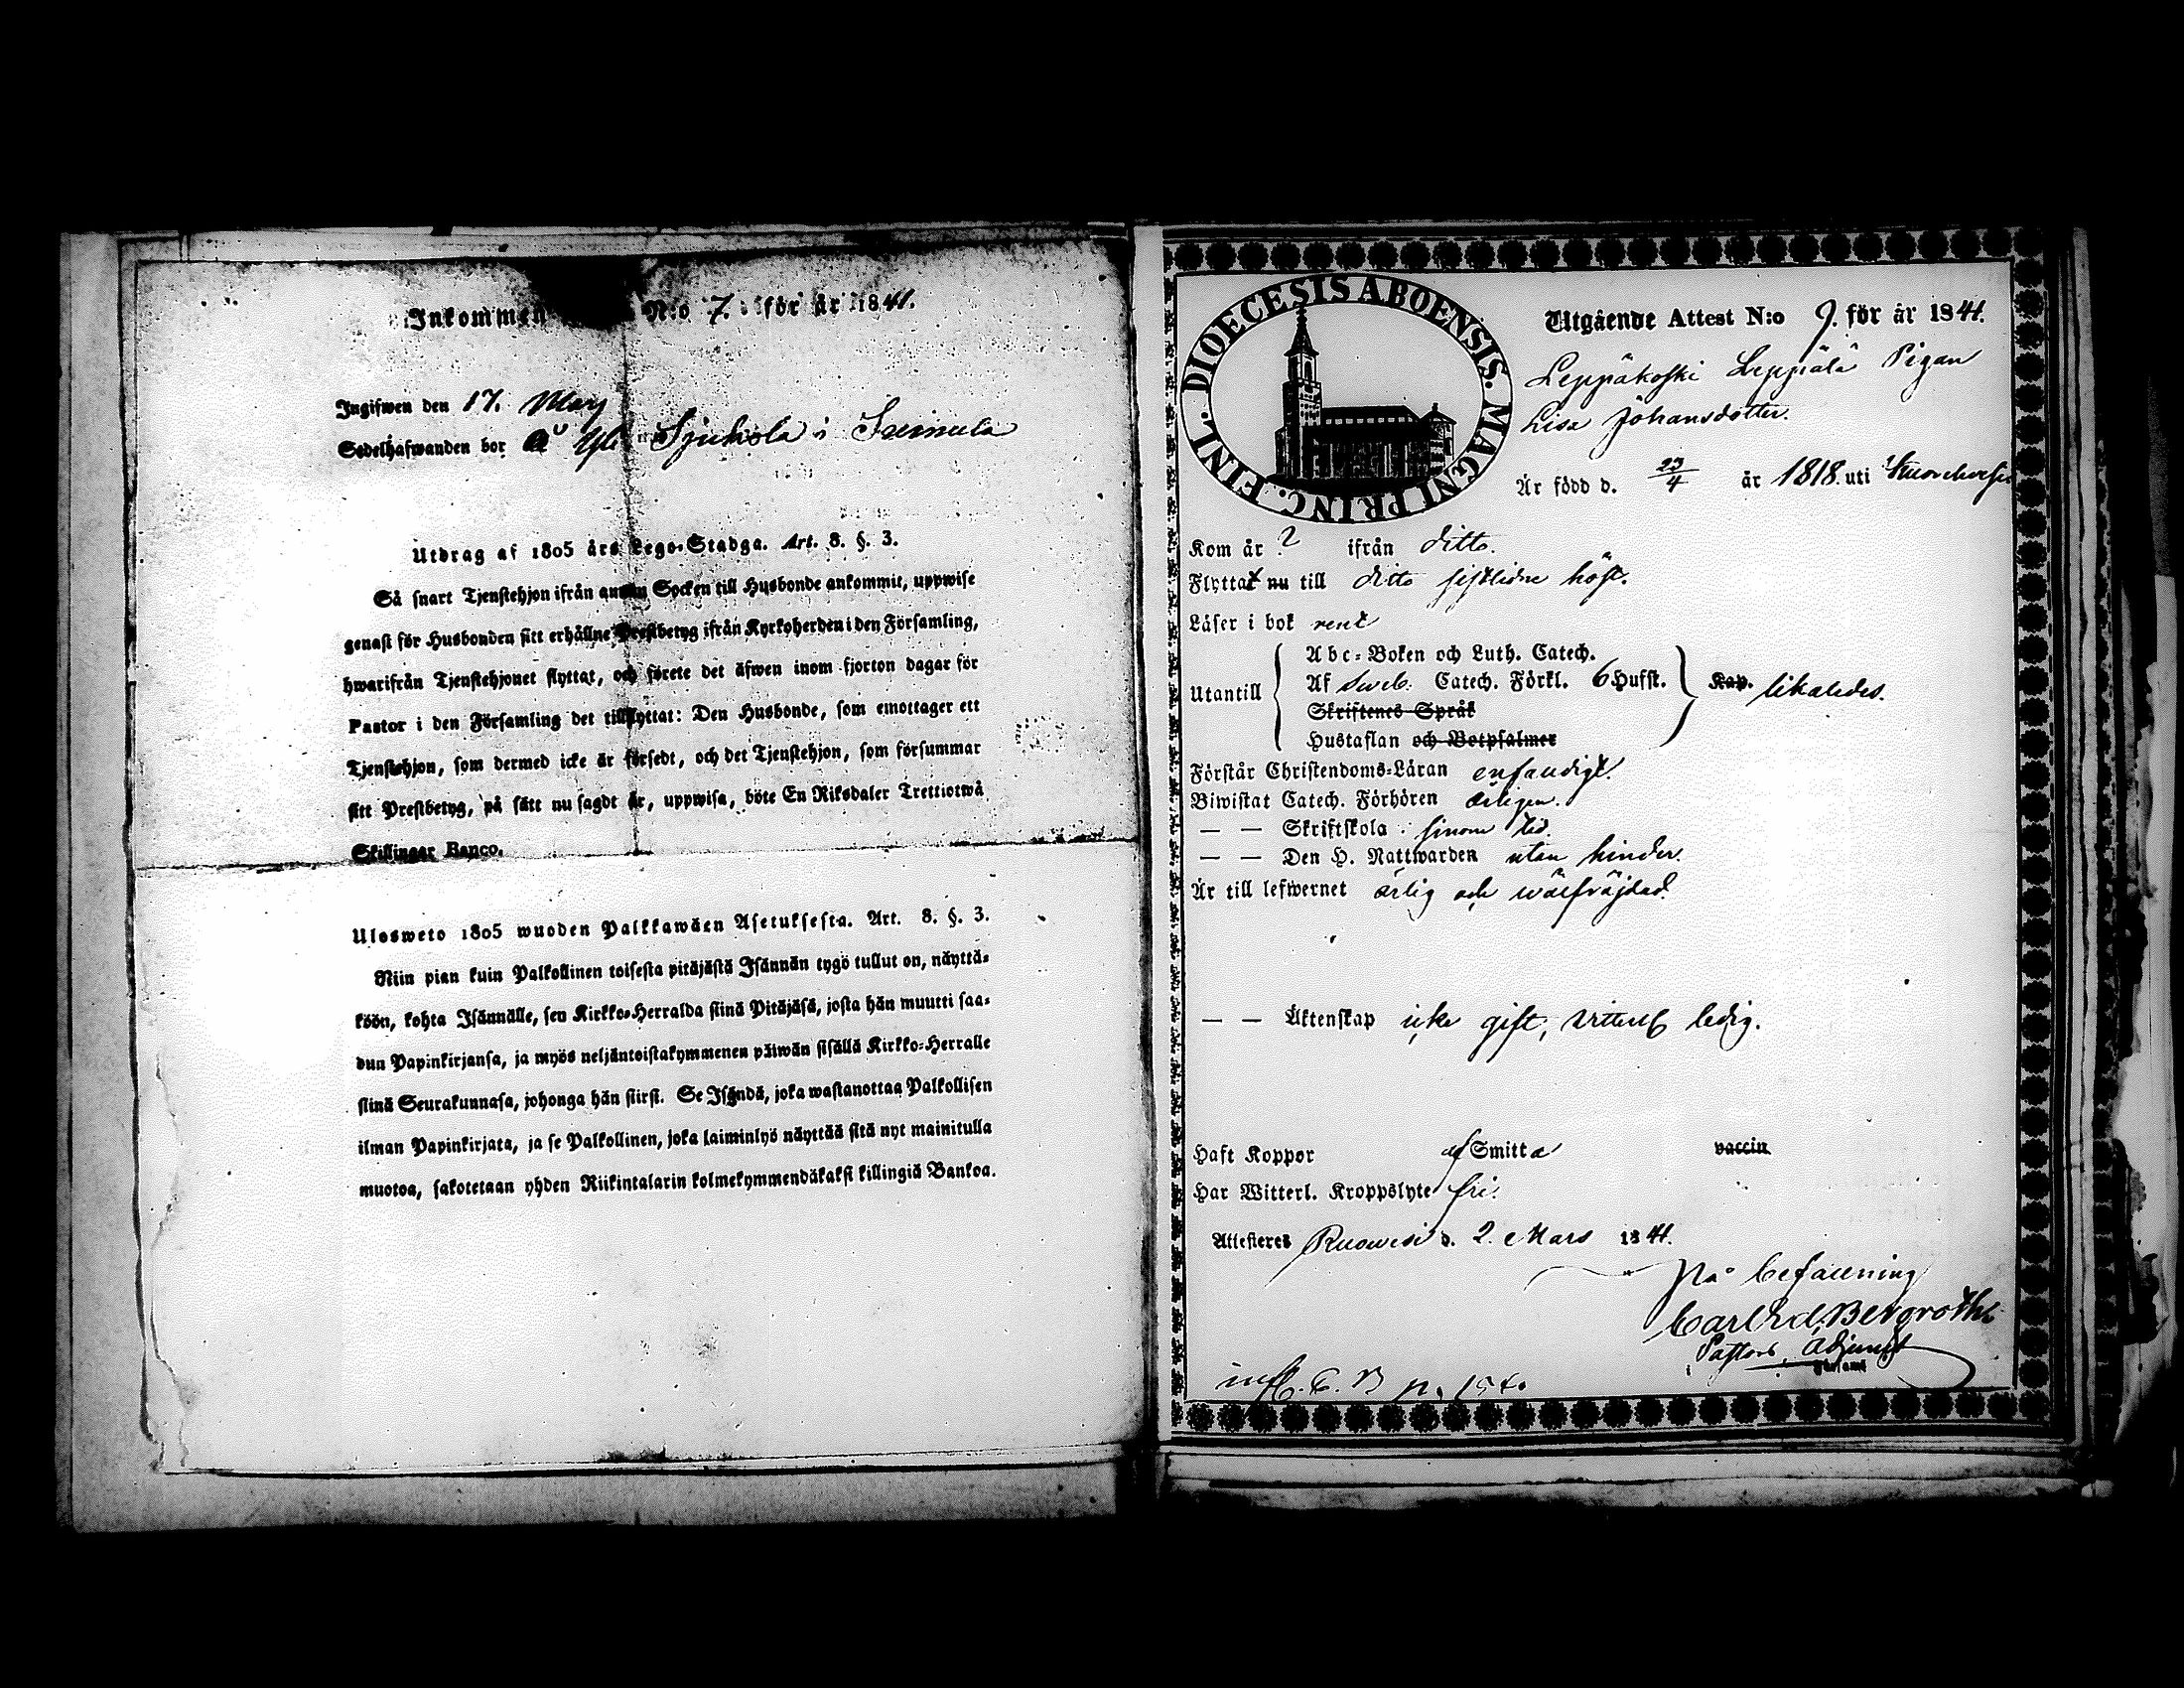 Inkommen N:o 7. för år 1841.
Ingifwen den 17. Mars
Sedelhafwanden bor å Yli Sjukola i
Utdrag af 1805 års Lego-Stadga. Art. 8. §. 3.
Så snart Tjenstehjon ifrån annan Socken till Husbonde ankommit, uppwise
genast för Husbonden sitt erhållne Prestbetyg ifrån Kyrkoherden i den Församling,
hwarifrån Tjenstehjonet flyttat, och förete det äfwen inom fjorton dagar för
Pastor i den Församling det tillflyttat: Den Husbonde, som emottager ett
Tjenstehjon, som dermed icke är försedt, och det Tjenstehjon, som försummar
sitt Prestbetyg, på sätt nu sagdt är, uppwisa, böte En Riksdaler Trettiotwå
Skillingar Banco.
Ulosweto 1805 wuoden Palkkawäen Asetuksesta. Art. 8. §. 3.
Niin pian kuin Palkollinen toisesta pitäjästä Isännän tygö tullut on, näyttä-
köön, kohta Isännälle, sen Kirkko-Herralda siinä Pitäjäsä, josta hän muutti saa-
dun Papinkirjansa, ja myös neljäntoistakymmenen päiwän sisällä Kirkko-Herralle
siinä Seurakunnasa, johonga hän siirsi. Se Isändä, joka wastanottaa Palkollisen
ilman Papinkirjata, ja se Palkollinen, joka laiminlyö näyttää sitä nyt mainitulla
muotoa, sakotetaan yhden Riikintalarin kolmekymmendäkaksi killingiä Bankoa.
FINL. DIOECESIS ABOENSIS. MAGNI PRINC.
Utgående Attest N:o 9. för år 1841.
Leppäkoski Leppälä Pigan
Lisa Johansdotter.
Är född d. 23/4 år 1818. uti
Kom år ? ifrån ditto.
Flyttat nu till ditto sistlidne höst.
Läser i bok rent
Abc-Boken och Luth. Catech.
Utantill Af Sweb. Catech. Förkl. 6 Hufst. Kap. likaledes.
Skriftenes Språk
Hustaflan och Botpsalmer
Förstår Christendoms-Läran enfaudigt.
Biwistat Catech. Förhören årligen.
— — Skriftskola sinom tid.
— — Den H. Nattwarden utan hinder.
Är till lefwernet ärlig och wälfräjdad.
— — Äktenskap icke gift, witterl. ledig.
Haft Koppor af Smitta vaccin
Har Witterl. Kroppslyte fri.
Attesteres Ruowesi d. 2. Mars 1841.
På befallning
Carl Ed. Bergroth
Pastors Adjunct
församl
inf. C. B p. 154.